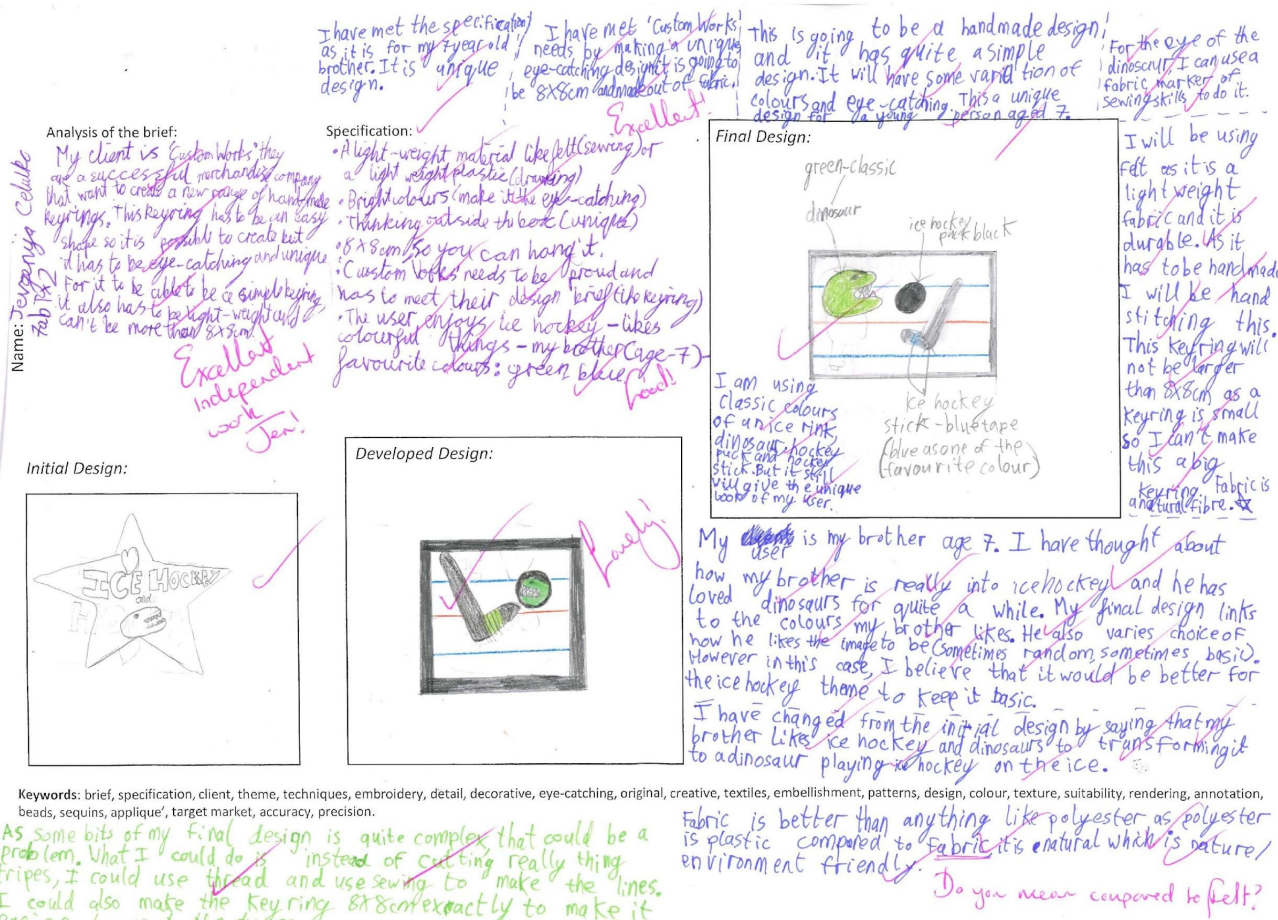 I have met the specification
as it is for my 7year old
brother. It is unique
design.
I have met 'Custom Works'
needs by making a unique
eye-catching design it is going to
be 8X8cm and made out of fabric.
Excellent!
This is going to be a handmade design
and it has quite a simple
design. It will have some variation of
colours and eye-catching. This a unique
design for a young person aged 7.
For the eye of the
dinosaur I can use a
fabric marker of
sewing skills to do it.
Name: Jevgenija
7ab Tx2
Analysis of the brief:
My client is 'Custom Works' they
are a successful merchandise company
that want to create a new range of handmade
keyrings. This keyring has to be an easy
shape so it is possible to create but
it has to be eye-catching and unique
For it to be able to be a simple keyring
it also has to be light-weight and
can't be more than 8x8cm!
Excellent
Independent
work
Jen!
Specification:
• A light-weight material like felt (sewing) or
a light weight plastic (drawing)
• Bright colours (make it the eye-catching)
• Thinking outside the box (unique)
• 8X8cm so you can hang it.
• Custom Works needs to be proud and
has to meet their design brief (the keyring)
• The user enjoys ice hockey - likes
colourful things - my brother (age-7)-
favourite colours: green blue
Good!
Final Design:
green-classic
dinosaur
ice hockey
puck black
I am using
classic colours
of an ice rink,
dinosaur, hockey
puck and hockey
stick. But it still
will give the unique
look of my user.
ice hockey
stick - blue tape
(blue as one of the
favourite colour)
I will be using
felt as it is a
light weight
fabric and it is
durable. As it
has to be handmade
I will be hand
stitching this.
This keyring will
not be larger
than 8X8cm as a
keyring is small
so I can't make
this a big
keyring. Fabric is
a natural fibre.
Initial Design:
ICE HOCKEY
and
Developed Design:
Lovely!
My user is my brother age 7. I have thought about
how my brother is really into ice hockey and he has
loved dinosaurs for quite a while. My final design links
to the colours my brother likes. He also varies choice of
how he likes the image to be (sometimes random, sometimes basic).
However in this case, I believe that it would be better for
the ice hockey theme to keep it basic.
I have changed from the initial design by saying that my
brother likes ice hockey and dinosaurs to transforming it
to a dinosaur playing ice hockey on the ice.
Keywords: brief, specification, client, theme, techniques, embroidery, detail, decorative, eye-catching, original, creative, textiles, embellishment, patterns, design, colour, texture, suitability, rendering, annotation,
beads, sequins, applique', target market, accuracy, precision.
As some bits of my final design is quite complex, that could be a
problem. What I could do is instead of cutting really thing
stripes, I could use thread and use sewing to make the lines.
I could also make the keyring 8X8cm exactly to make it
Fabric is better than anything like polyester as polyester
is plastic compared to fabric it is natural which is nature/
environment friendly.
Do you mean compared to felt?